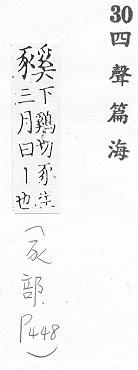 30 四聲篇海
豯下鷄切豕
三月曰丨也
(豕部 P448)